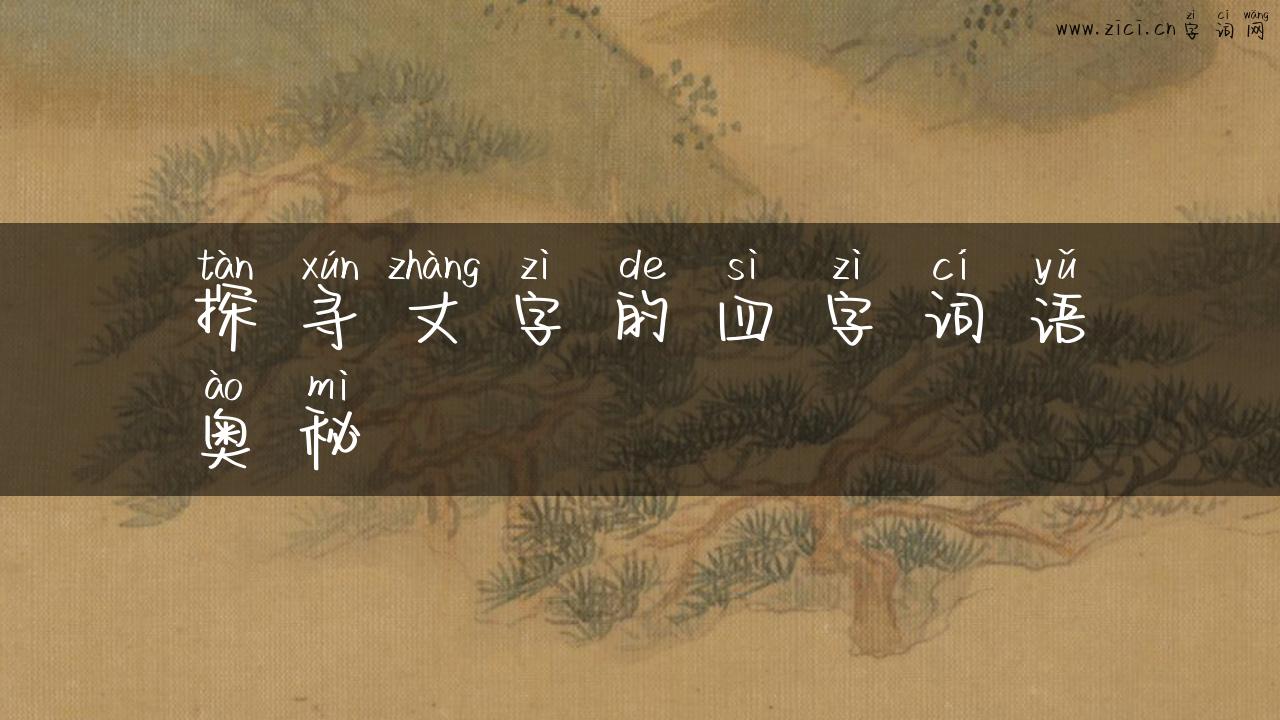 zì cí wǎng
www.zici.cn 字词网
tàn xún zhàng zì de sì zì cí yǔ
探寻丈字的四字词语
ào mì
奥秘